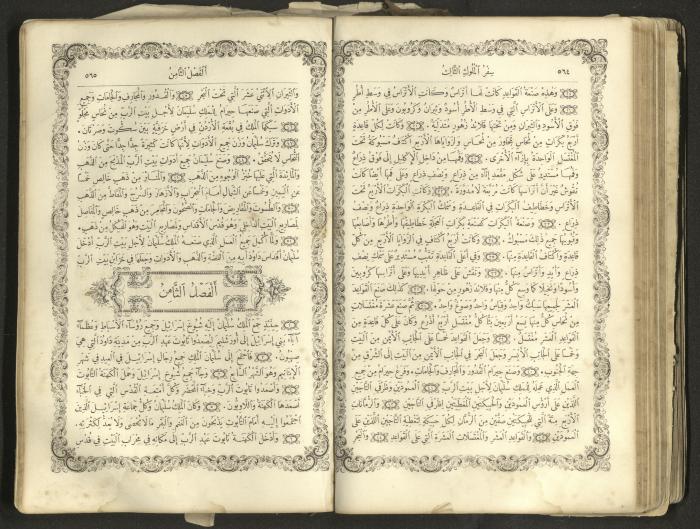 ٥٦٤
سفر الملوك الثالث
وهذه صنعة القواعد كانت لها أتراس وكانت الأتراس في وسط أطر
وعلى الأتراس التي في وسط الأطر أسود وثيران وكروبون وعلى الأطر من
فوق الأسود والثيران ومن تحتها قلائد زهور متدلية. وكانت لكل قاعدة
أربع بكرات من نحاس بمحاور من نحاس ولزواياها الأربع أكتاف مسبوكة تحت
المغتسل الواحدة بإزاء الأخرى. وفمها من داخل الإكليل إلى فوق ذراع
وفمها مستدير على شكل مقعد إناء من ذراع ونصف ذراع وعلى فمها أيضا كانت
نقوش غير أن أتراسها كانت مربعة لا مدورة. وكانت البكرات الأربع تحت
الأتراس وخطاطيف البكرات في القاعدة وسمك البكرة الواحدة ذراع ونصف
ذراع. وصنعة البكرات كصنعة بكرات العجلة خطاطيفها وأطرها وأصابعها
وقبوبها جميع ذلك مسبوك. وكانت أربع أكتاف في الزوايا الأربع من كل
قاعدة وأكتاف القاعدة منها. وفي أعلى القاعدة تقبيب مستدير على سمك نصف
ذراع
العشر لجميعها سبك واحد وقياس واحد وصوغ واحد. ثم صنع عشرة مغتسلات
من نحاس كل منها يسع أربعين بثا كل مغتسل أربع أذرع وكان على كل قاعدة من
القواعد العشر مغتسل. وجعل القواعد خمسا على الجانب الأيمن من البيت
وخمسا على الجانب الأيسر وجعل البحر في الجانب الأيمن من البيت إلى الشرق من
جهة الجنوب. وصنع حيرام القدور والمجارف والجامات. وفرغ حيرام من جميع
العمل الذي عمله للملك سليمان لأجل بيت الرب. العمودين وظرفي التاجين
اللذين على رأسي العمودين والحبيكتين المغطيتين لظرفي التاجين
والرمانات
الأربع مئة التي للحبيكتين صفين من الرمان لكل حبيكة لتغطية التاجين اللذين على
العمودين والقواعد العشر والمغتسلات العشرة التي على القواعد والبحر
الفصل الثامن
٥٦٥
والثيران الاثني عشر التي تحت البحر والقدور والمجارف والجامات وجميع
الأدوات التي صنعها حيرام للملك سليمان لأجل بيت الرب من نحاس مجلو
سبكها الملك في بقعة الأردن في أرض خزفية بين سكوت وصرتان.
وترك سليمان وزن جميع الأدوات لأنها كانت كثيرة جدا جدا حتى كان وزن
النحاس لا يحقق. وصنع سليمان جميع أدوات بيت الرب المذبح من الذهب
والمائدة التي عليها خبز الوجوه من الذهب والمنائر من ذهب خالص خمسا
عن اليمين وخمسا عن الشمال أمام المحراب والأزهار والسرج والمقاط من الذهب
والطسوت والمقاريض والجامات والصحون والمجامر من ذهب خالص والمفاصل
لمصاريع البيت الداخلي وهو قدس الأقداس ولمصاريع البيت وهو الهيكل من ذهب.
ولما أكمل جميع العمل الذي صنعه الملك سليمان لأجل بيت الرب أدخل
سليمان أقداس داود أبيه من الفضة والذهب والأدوات وجعلها في خزائن بيت الرب
الفصل الثامن
حينئذ جمع الملك سليمان إليه شيوخ إسرائيل وجميع رؤساء الأسباط وعظماء
آباء بني إسرائيل إلى أورشليم ليصعدوا تابوت عهد الرب من مدينة داود التي هي
صهيون. فاجتمع إلى سليمان الملك جميع رجال إسرائيل في العيد في شهر
الإيتانيم وهو الشهر السابع. وجاء جميع شيوخ إسرائيل وحمل الكهنة التابوت
وأصعدوا تابوت الرب وخباء المحضر وكل أمتعة القدس التي في الخباء
أصعدها الكهنة واللاويون. وكان الملك سليمان وكل جماعة إسرائيل الذين
اجتمعوا إليه أمام التابوت يذبحون من الغنم والبقر ما لا يحصى ولا يعد لكثرته.
وأدخل الكهنة تابوت عهد الرب إلى مكانه في محراب البيت في قدس